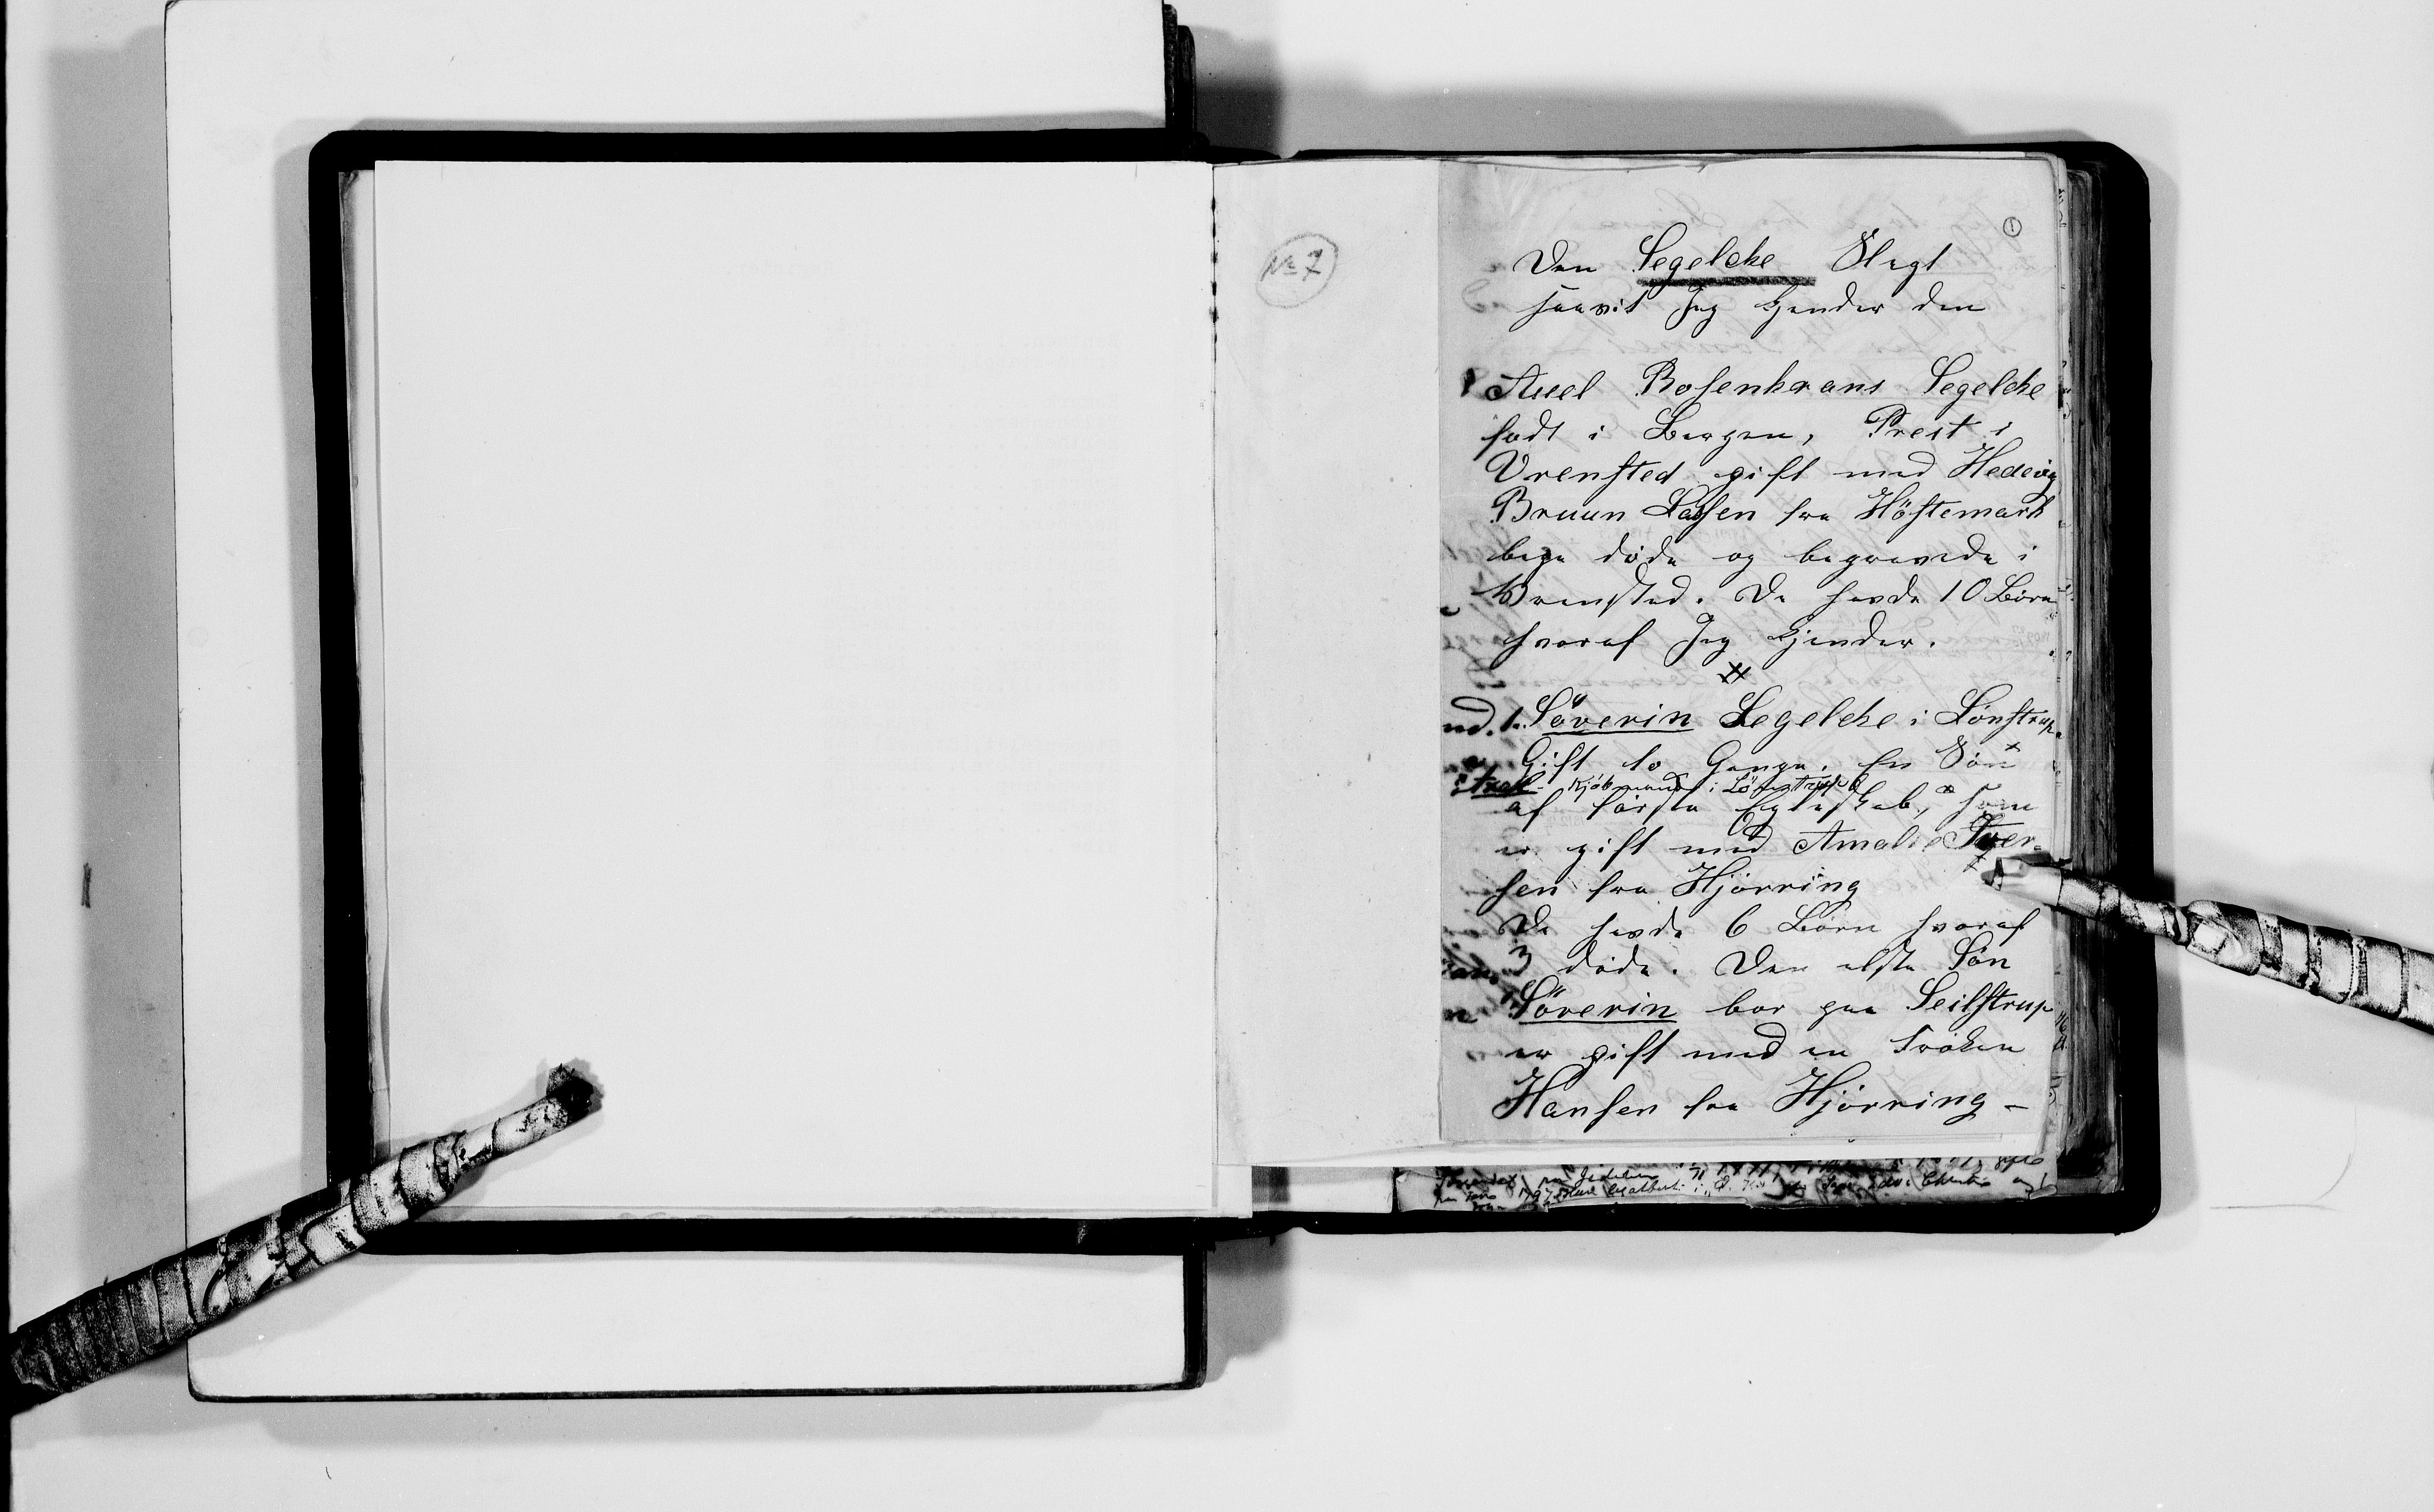 No 7
1
Den Segelcke Slegt
saavit Jeg kjender den
Axel Rosenkrans Segelcke
født i Bergen, Prest i
Vrensted gift med Hedevig
Bruun Lassen fra Höstemark
bege døde og begravede i
Vrensted. De havde 10 Børn
hvoraf Jeg kjender.
1. Söverin Segelcke i Lønstrup
Gift to Gange. En Søn
Axel Kjøbmand i Lönstrup
af første Egteskab, som
er gift med Amalie Iver-
sen fra Hjørring
De havde 6 Børn hvoraf
3 døde. Den elste Søn
Söverin bor paa Seilstrup
er gift med en Frøken
Hansen fra Hjørring -